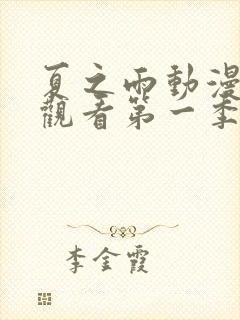 夏之雨動漫
觀看第一季
李金霞